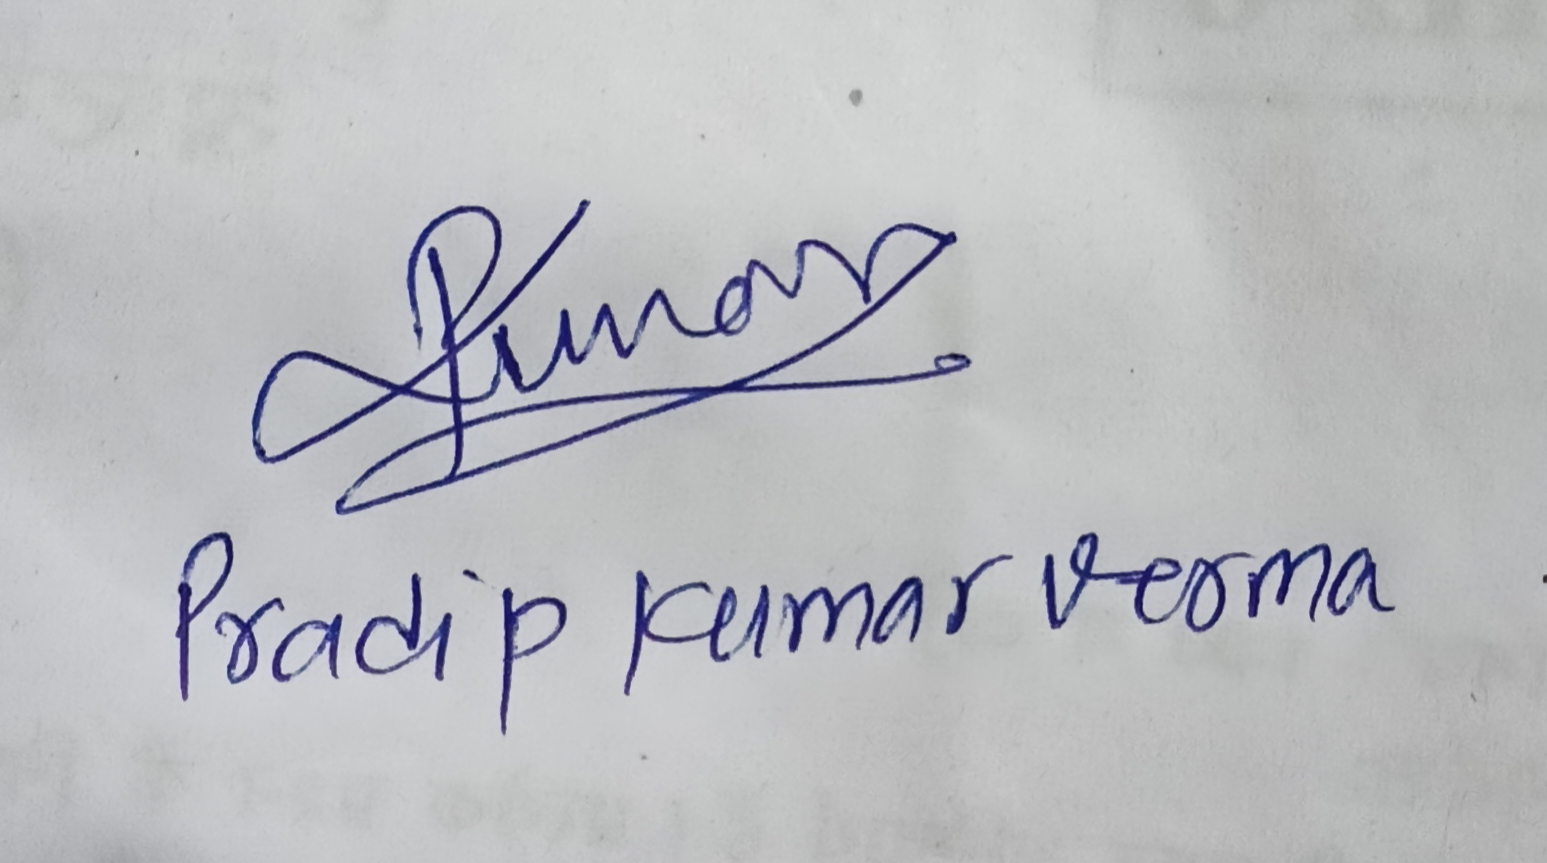 PKumar
Pradip Kumar Verma